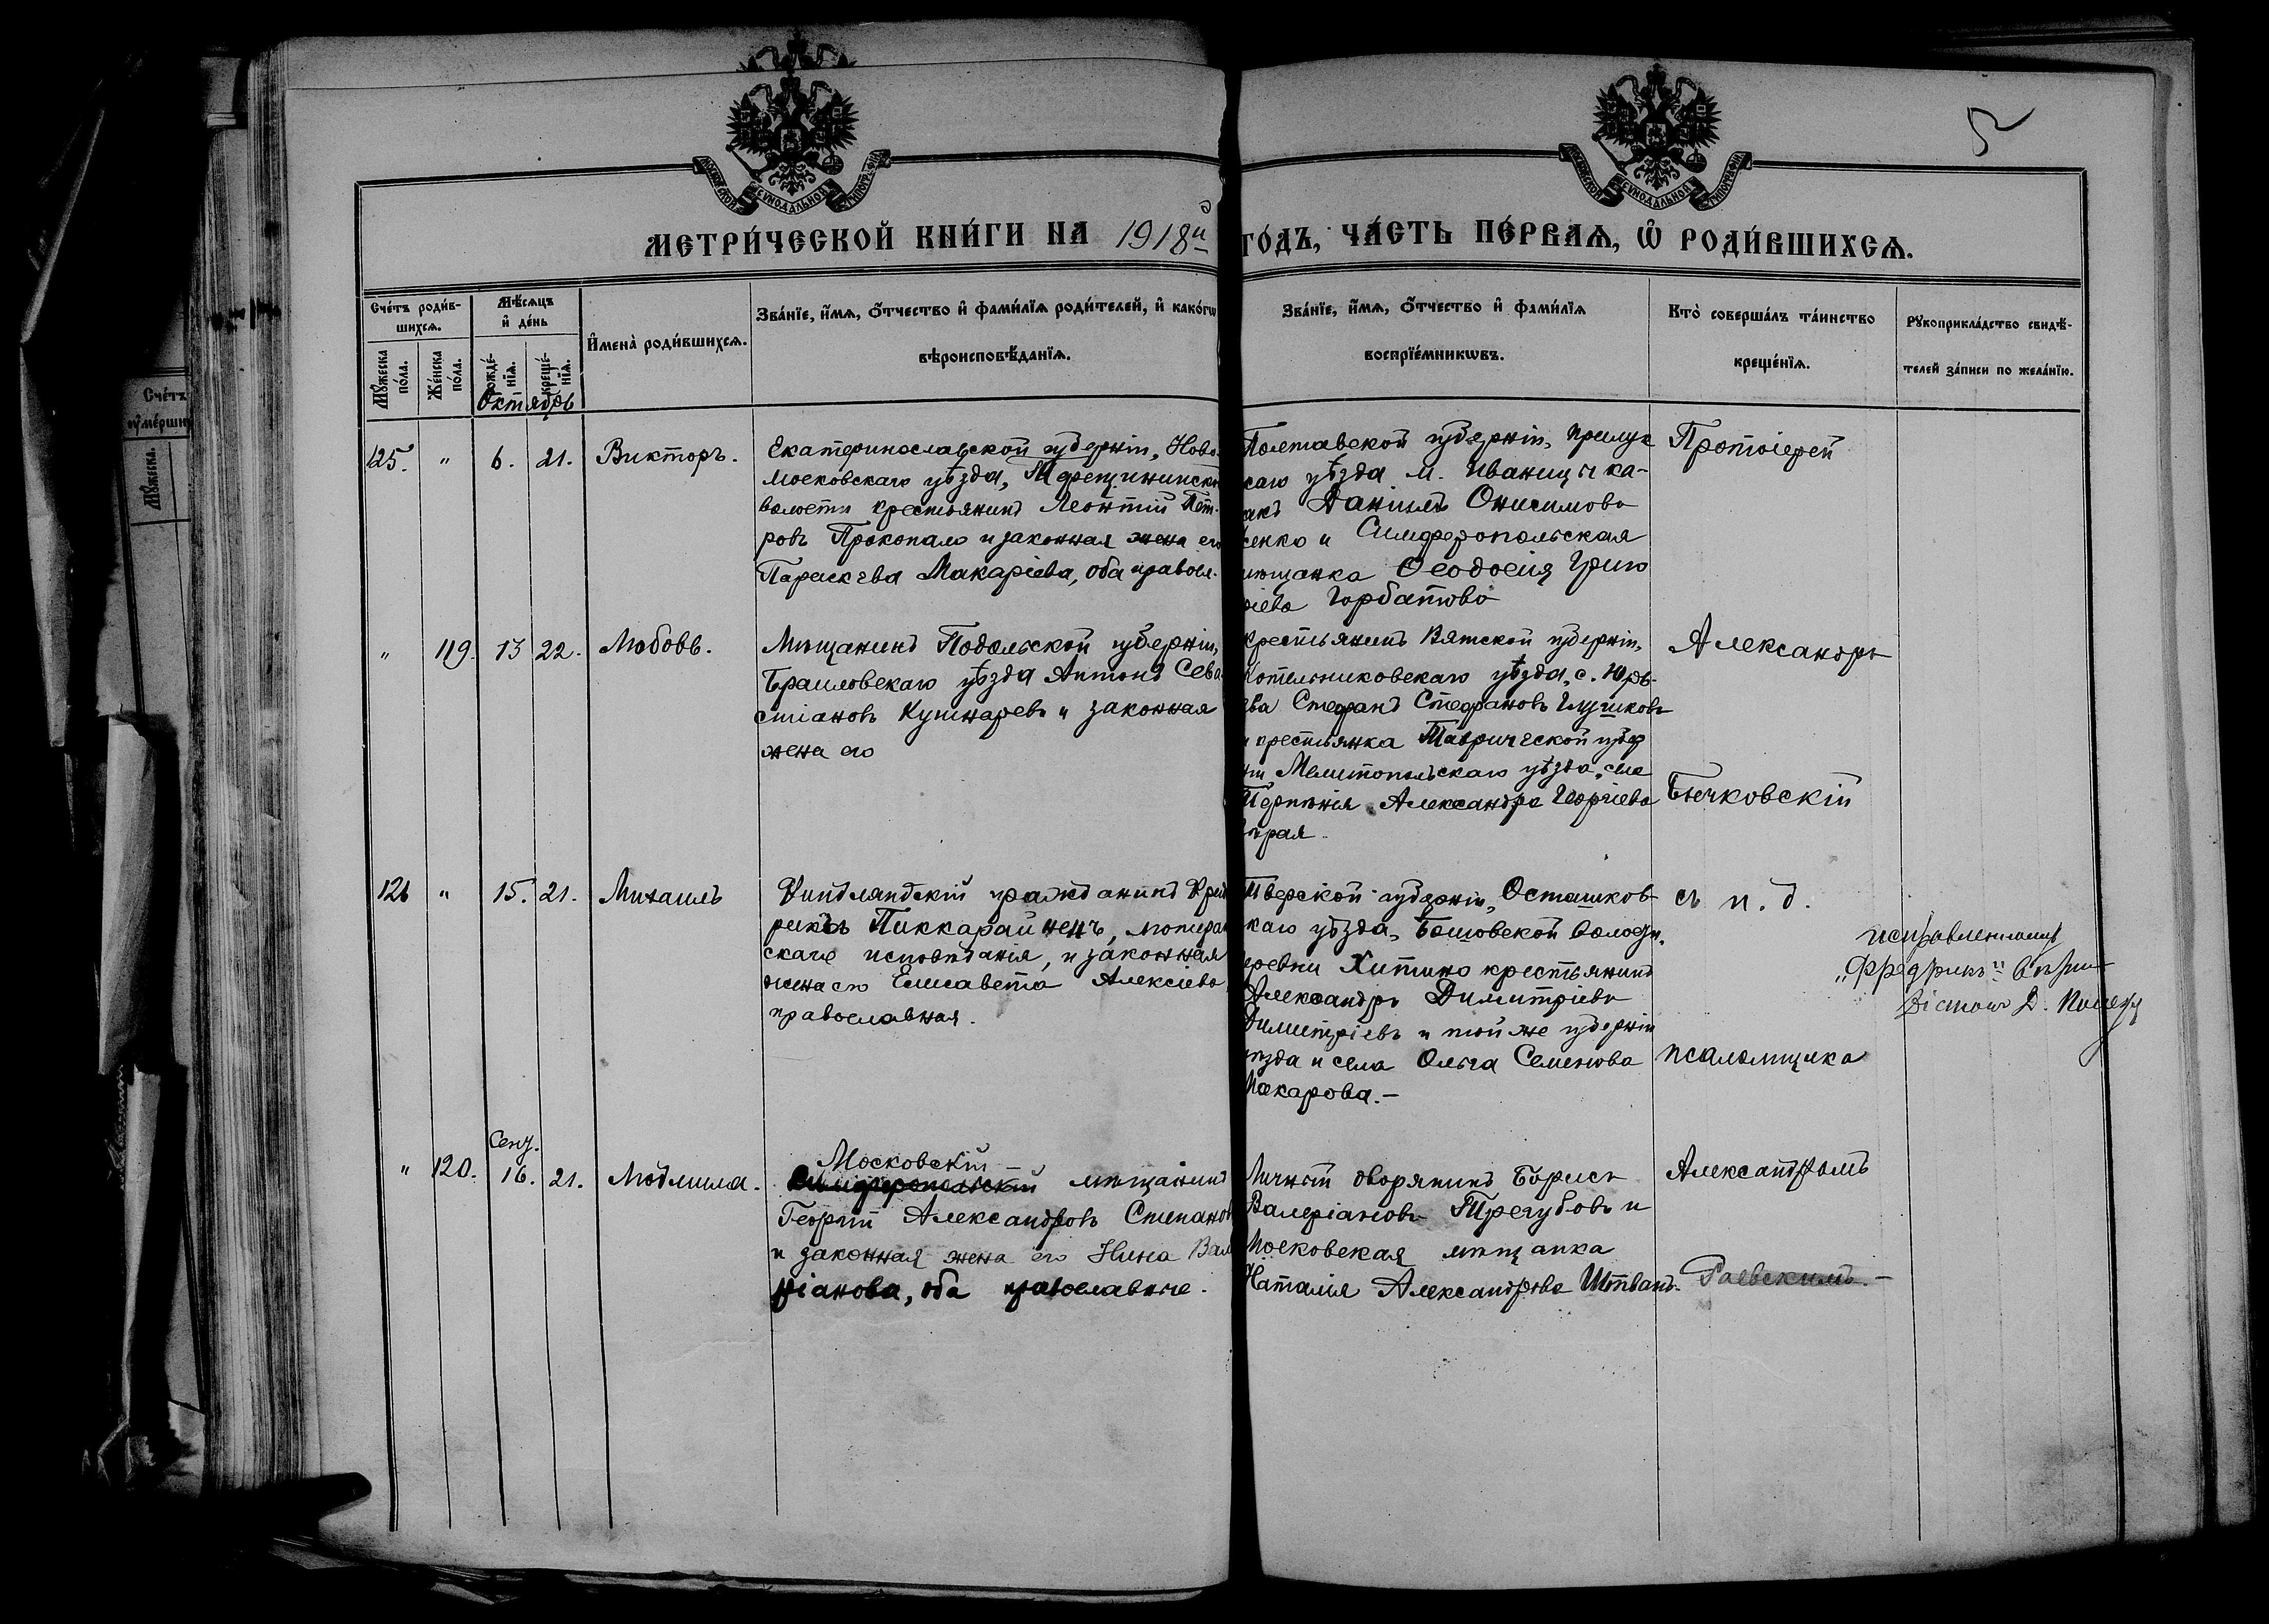 5
МОСКОВСКОЙ СѴНОДАЛЬНОЙ ТИПОГРАФІИ
МОСКОВСКОЙ СѴНОДАЛЬНОЙ ТИПОГРАФІИ
МЕТРИ́ЧЕСКОЙ КНИ́ГИ НА 1918й ГО́ДЪ, ЧА́СТЬ ПЕ́РВАѦ, Ѡ҆ РОДИ́ВШИХСѦ.
Сче́тъ роди́в-
шихсѧ.
Мꙋ́жеска по́ла.
Же́нска по́ла.
Мѣ́сѧцъ
и҆ де́нь
рожде́-
нїѧ.
креще́-
нїѧ.
И҆мена̀ роди́вшихсѧ.
Зва́нїе, и҆́мѧ, ѻ҆́тчество и҆ фами́лїѧ роди́телей, и҆ како́гѡ
вѣроисповѣ́данїѧ.
Зва́нїе, и҆́мѧ, ѻ҆́тчество и҆ фами́лїѧ
воспрїе́мникѡвъ.
Кто̀ соверша́лъ та́инство
креще́нїѧ.
Рꙋкоприкла́дство свидѣ́-
телей за́писи по жела́нїю.
Октябрь
125. " 6. 21. Викторъ.
Екатеринославской губерніи, Ново-
московскаго уѣзда,
волости крестьянинъ Леонтій Пет-
ровъ Прокопало и законная жена его
Параскева Макаріева, оба правосл.
Полтавской губерніи, Прилук
скаго уѣзда м. Иваницы ка-
акъ Даніилъ Онисимовъ
сенко и Симферопольская
мѣщанка Ѳеодосія Григо
ріева Горбатова
Протоіерей
" 119. 13 22. Любовь.
Мѣщанинъ Подольской губерніи,
Браиловскаго уѣзда Антонъ Сева-
стіановъ Кушнаревъ и законная
жена его
Крестьянинъ Вятской губерніи,
Котельниковскаго уѣзда, с. Юрь-
ева Стефанъ Стефановъ Глушковъ
и крестьянка Таврической губер
ніи Мелитопольскаго уѣзда, села
Александра Георгіева
Александръ
Бычковскій
126 " 15. 21. Михаилъ
Финдляндскій гражданинъ Фрид
рихъ Пиккарайненъ, лютеран
скаго исповѣданія, и законная
жена его Елисавета Алексіева
православная.
Тверской губерніи, Осташков
скаго уѣзда, волости,
деревни Хитино крестьянинъ
Александръ Димитріевъ
Димитріевъ и той же губерніи
уѣзда и села Ольга Семенова
Макарова.-
съ и. д.
псаломщика
исправленному
"Фредрихъ" вѣрить
Д.
Сент.
" 120. 16. 21. Людмила.
Московскій
Симферопольскій мѣщанинъ
Георгій Александровъ Степановъ
и законная жена его Нина Вале
ріанова, оба православные.
Личный дворянинъ Борисъ
Валеріановъ Трегубовъ и
Московская мѣщанка
Наталія Александрова
Александромъ
Раевскимъ.-
Сче́тъ
ᲂу҆ме́рши
Мꙋ́жеска.